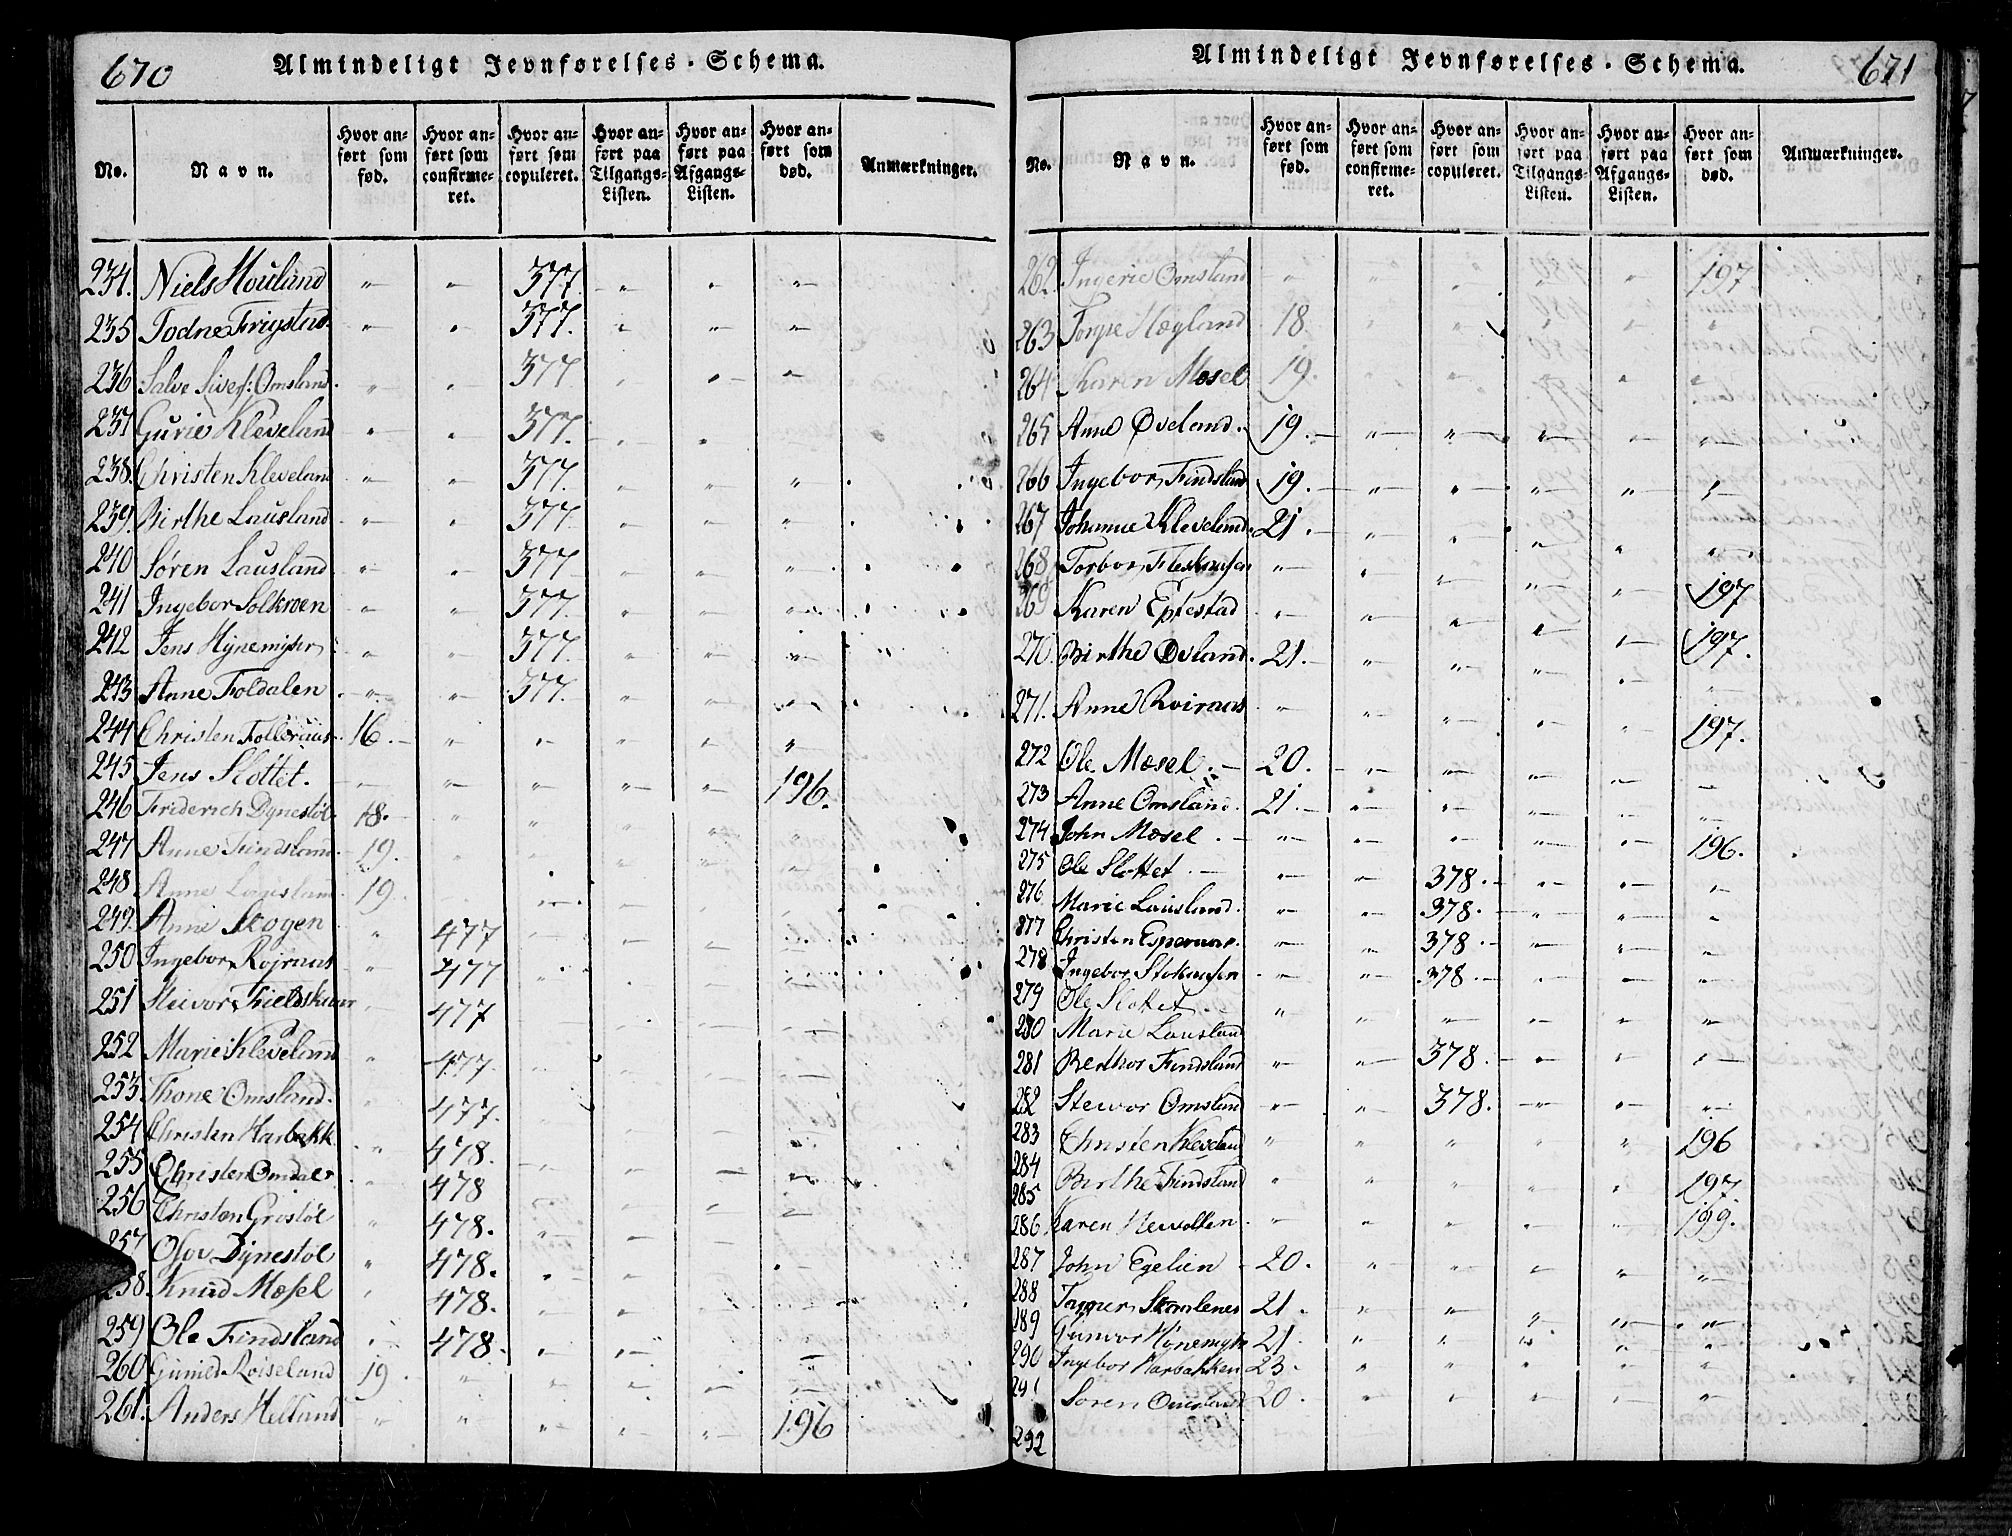 670 Almindeligt Jevnførelses-Schema.
No. Navn. Hvor anført som fød. Hvor anført som confirmeret. Hvor anført som copuleret. Hvor anført paa Tilgangs-Listen. Hvor anført paa Afgangs-Listen. Hvor anført som død. Anmærkninger.
234. Niels Houland " " 377. " " "
235 Todne Frigstad " " 377. " " "
236 Salve Sives: Omsland " " 377 " " "
237 Gurie Kleveland " " 377. " "
238. Christen Kleveland " " 377. " " "
239. Birthe Lausland " " 377. " " "
240 Søren Lausland " " 377. " " "
241 Ingebor Solkroen " " 377. " " "
242 Jens Hynemyhr " " 377. " " "
243 Anne Foldalen " " 377. " " "
244 Christen Folleraas 16. " " " " "
245 Jens Slottet. " " " " " 196.
246 Friderich Dynestøl 18. " " " " "
247 Anne Findsland 19. " " " "
248 Anne Lausland 19.
249. Anne Skogen " 477
250 Ingebor Rojraas " 477
251 Fieldskaar " 477
252 Marie Kleveland " 477
253 Thone Omsland. " 477.
254 Christen Harbakk " 478.
255 Christen Omdal " 478
256 Christen Gristøl " 478.
257 Olov Dynestøl " 478.
258. Knud Mæsel " 478.
259 Ole Findsland " 478.
260 Gunild Roiseland 19
261. Anders Helland " " " " " 196
Almindeligt Jevnførelses-Schema. 671
No. Navn. Hvor anført som fød. Hvor anført som confirmeret. Hvor anført som copuleret. Hvor anført paa Tilgangs-Listen. Hvor anført paa Afgangs-Listen. Hvor anført som død. Anmærkninger.
262. Ingerie Omsland " " " " " 197.
263 Torgie Hægland 18. " " " " "
264 Karen Mæsel 19. " " " " "
265 Anne Øveland. 19. " " " " "
266 Ingebor Findsland 19. " " " " "
267 Johanne Kleveland. 21. " " " " "
268 Torbor " " " " " 197
269 Karen Eptestad " " " " " 197.
270. Birthe Øvland. 21. " " " " "
271. Anne Roiraas " " " " " 197.
272 Ole Mæsel 20. " " " " "
273 Anne Omsland. 21. " " " " "
274 John Mæsel " " " " " 196.
275 Ole Slottet " " 378. " " "
276 Marie Lausland. " " 378. " " "
277 Christen " " 378 " " "
278 Ingebor " " 378. " " "
279 Ole Slottet " " " " " "
280 Marie Lausland
281 Berthor Findsland " " 378. " " "
282 Steivor Omsland " " 378. " " "
283 Christen Kleveland " " " " " 196
284 Birthe Findsland " " " " " 197.
285
286. Karen " " " " " 199.
287 John Egelien 20. " " " " "
288 21. " " " " "
189 Gunvor Hynemyhr 21. " " " " "
290 Ingebor Harbakken 23. " " " " "
291 Soren Omsland 20 " " " " "
292